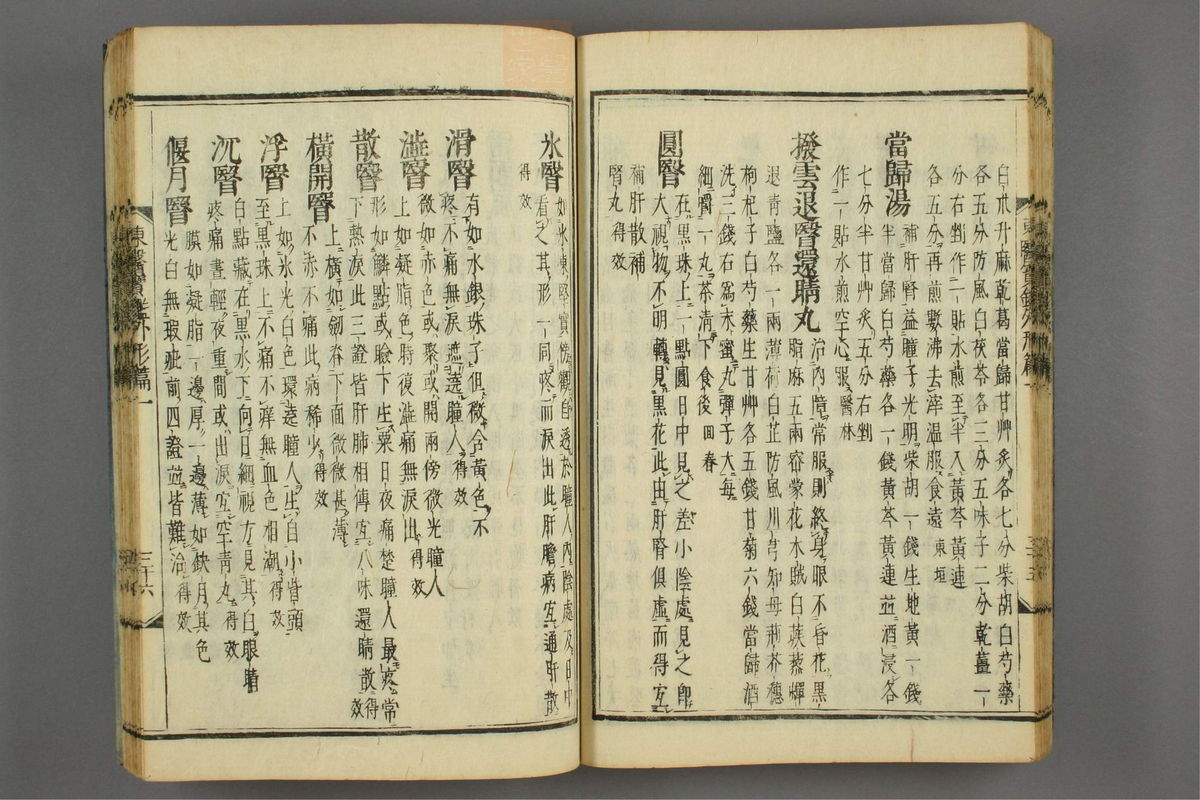 白朮升麻乾葛當歸甘艸炙各七分柴胡白芍藥
各五分防風白茯苓各三分五味子二分乾薑一
分右剉作二貼水煎至半入黃芩黃連
各五分再煎數沸去滓溫服食遠 東垣
當歸湯 補肝腎益瞳子光明柴胡一錢生地黃一錢
半當歸白芍藥各一錢黃芩黃連並酒浸各
七分半甘艸炙五分右剉
作一貼水煎空心服 醫林
撥雲退瞖還睛丸 治內障常服則終身眼不昏花黑
脂麻五兩密蒙花木賊白蒺藜蟬
退靑鹽各一兩薄荷白芷防風川芎知母荊芥穗
枸杞子白芍藥生甘艸各五錢甘菊六錢當歸酒
洗三錢右爲末蜜丸彈子大每
細嚼一丸茶淸下食後 回春
圓瞖 在黑珠上一點圓日中見之差小陰處見之卽
大視物不明轉見黑花此由肝腎俱虛而得宜
補肝散補
腎丸 得效
氷瞖 如氷凍堅實傍觀自透於瞳人內陰處及日中
看之其形一同疼而淚出此肝膽病宜通肝散
得效
滑瞖 有如水銀珠子但微含黃色不
疼不痛無淚遮遶瞳人 得效
澁瞖 微如赤色或聚或開兩傍微光瞳人
上如凝脂色時復澁痛無淚出 得效
散瞖 形如鱗點或瞼下生粟日夜痛楚瞳人最疼常
下熱淚此三證皆肝肺相傳宜八味還睛散 得效
橫開瞖 上橫如劒脊下面微微甚薄
不赤不痛此病稀少 得效
浮瞖 上如氷光白色環遶瞳人生白小眥頭
至黑珠上不痛不痒無血色相潮 得效
沉瞖 白點藏在黑水下向日細視方見其白眼睛
疼痛晝輕夜重間或出淚宜空靑丸 得效
偃月瞖 膜如凝脂一邊厚一邊薄如缺月其色
光白無瑕疵前四證並皆難治 得效
東醫寶鑑外形篇一
三十六